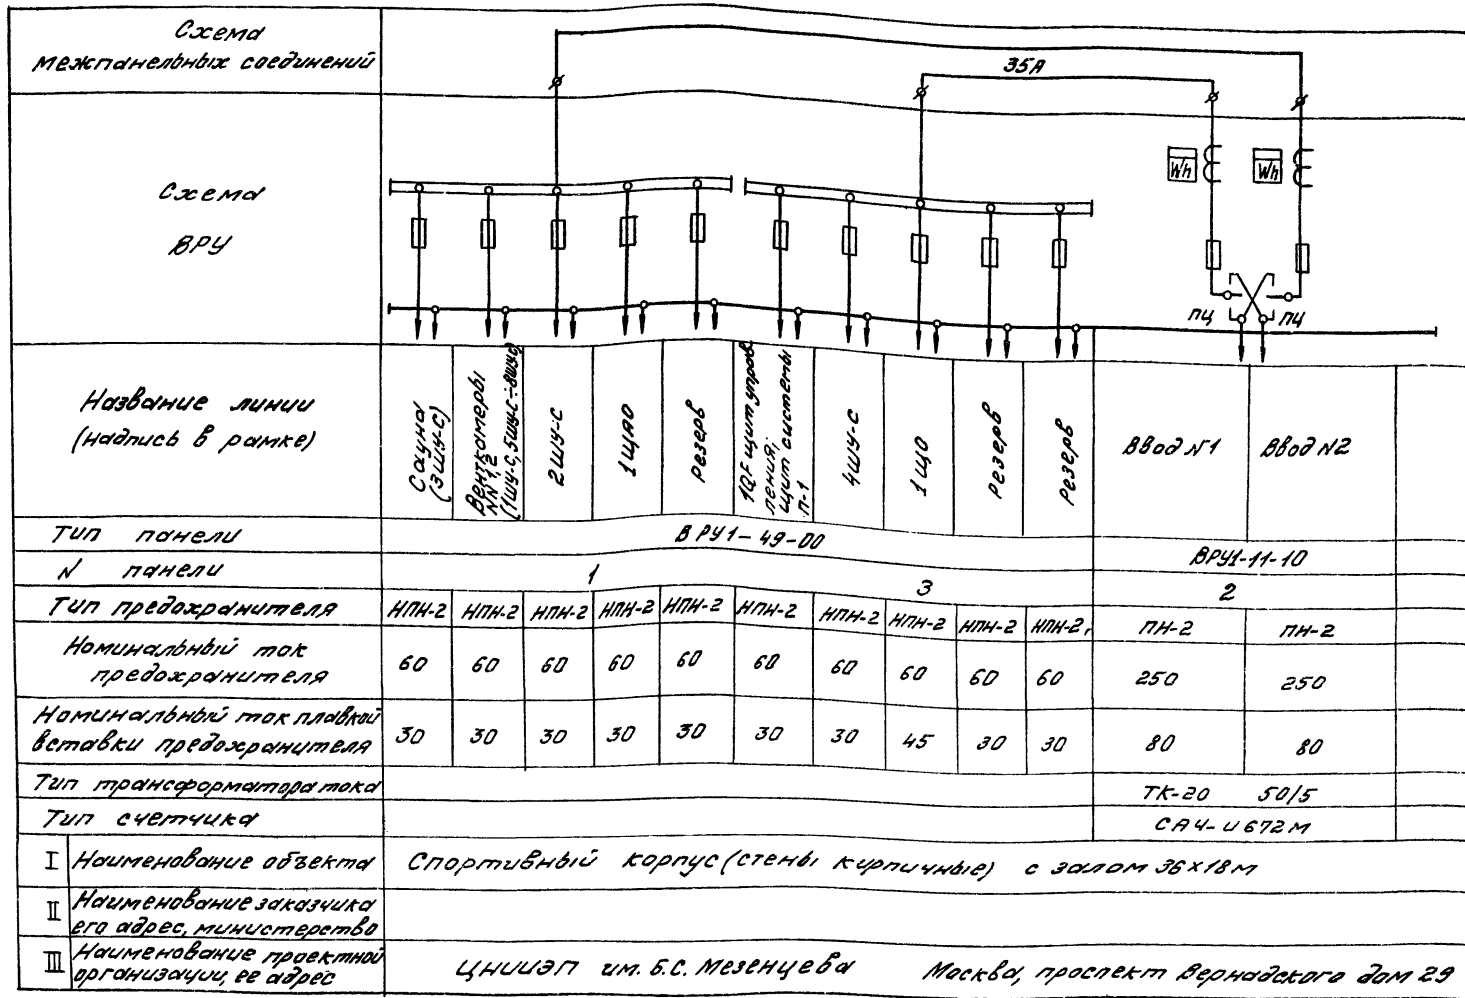 Схема
межпанельных соединений
35А
Схема
ВРУ
Wh
Wh
ПЦ
ПЦ
Название линии
(надпись в рамке)
Сауна
(3ШУ-С)
Венткамеры
NN 1,2
(1ШУ-С, 5ШУ-С÷8ШУС)
2ШУ-С
1ЩАО
Резерв
1QF щит управ
ления;
щит системы
П-1
4ШУ-С
1ЩО
Резерв
Резерв
Ввод N1
Ввод N2
Тип панели
ВРУ1-49-00
ВРУ1-11-10
N панели
1
3
2
Тип предохранителя
НПН-2 НПН-2 НПН-2 НПН-2 НПН-2 НПН-2 НПН-2 НПН-2 НПН-2 НПН-2 ПН-2 ПН-2
Номинальный ток
предохранителя
60 60 60 60 60 60 60 60 60 60 250 250
Номинальный ток плавкой
вставки предохранителя
30 30 30 30 30 30 30 45 30 30 80 80
Тип трансформатора тока
ТК-20 50/5
Тип счетчика
СА4-И672М
I Наименование объекта Спортивный корпус (стены кирпичные) с залом 36х18м
II Наименование заказчика
его адрес, министерство
III Наименование проектной
организации, ее адрес
ЦНИИЭП им. Б.С. Мезенцева Москва, проспект Вернадского дом 29